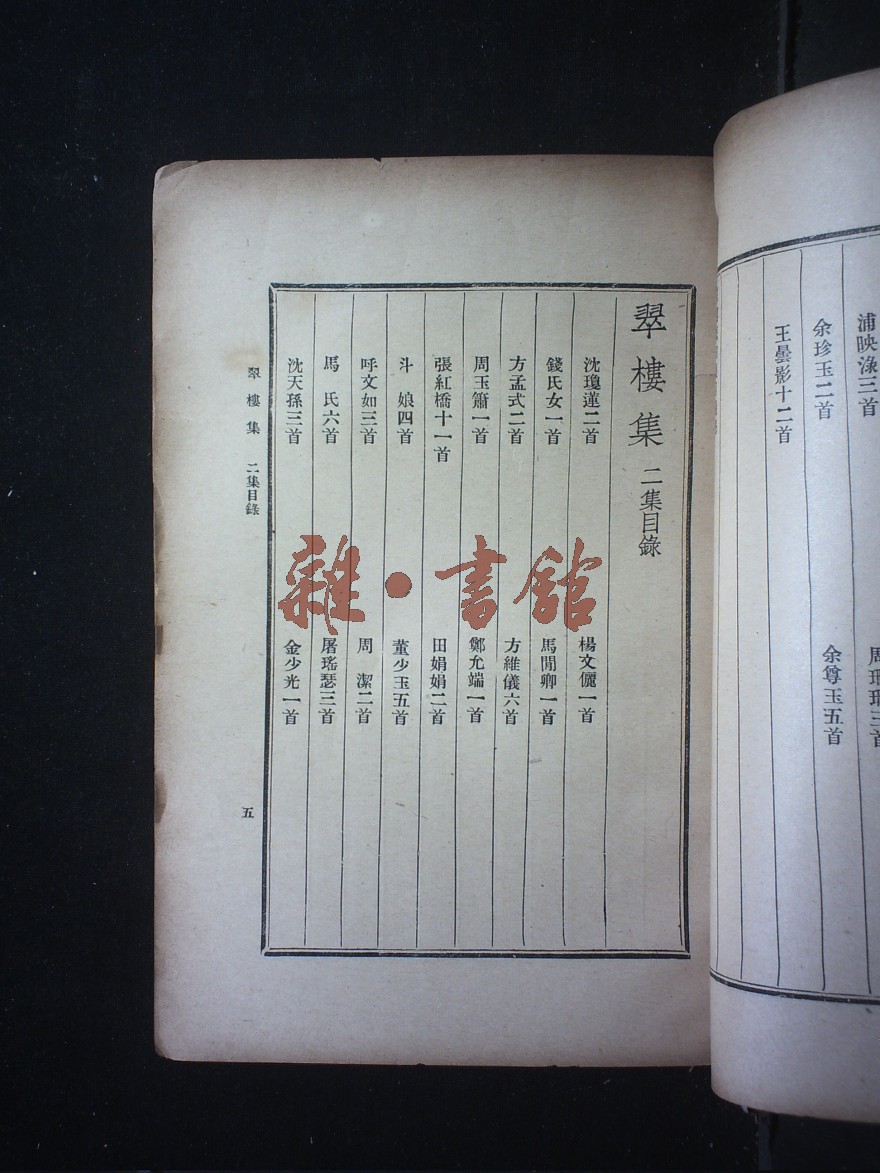 浦映淥三首
周
余珍玉二首
余尊玉五首
王曇影十二首
翠樓集 二集目錄
沈瓊蓮二首
楊文儷一首
錢氏女一首
馬閒卿一首
方孟式二首
方維儀六首
周玉簫一首
鄭允端一首
張紅橋十一首
田娟娟二首
斗 娘四首
董少玉五首
呼文如三首
周 潔二首
馬 氏六首
屠瑤瑟三首
沈天孫三首
金少光一首
翠樓集 二集目錄
五
雜·書館